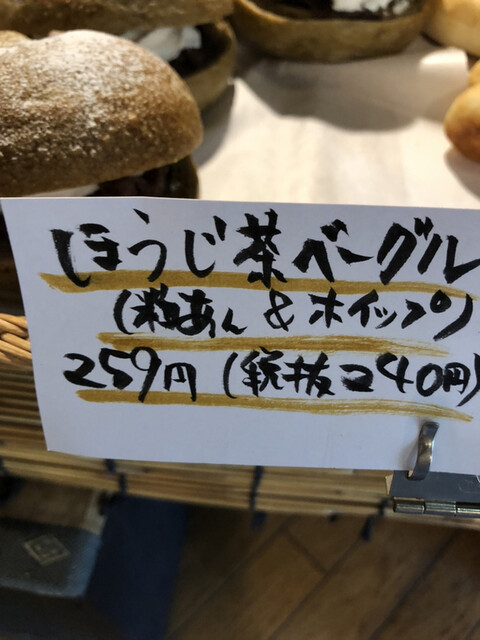 ほうじ茶ベーグル
(粒あん & ホイップ)
259円 (税抜240円)